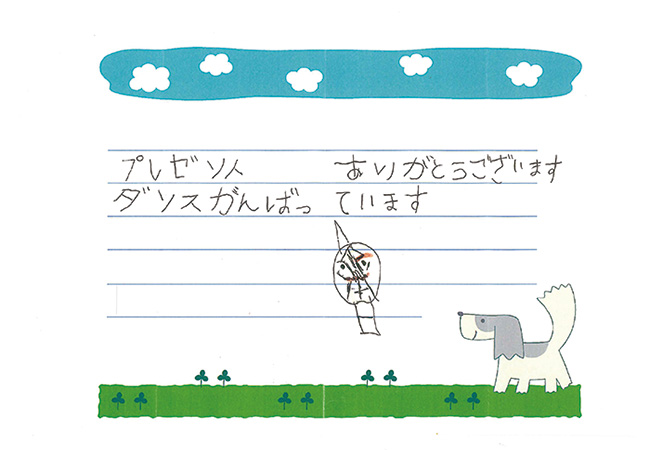 プレゼント ありがとうございます
ダンスがんばっ ています